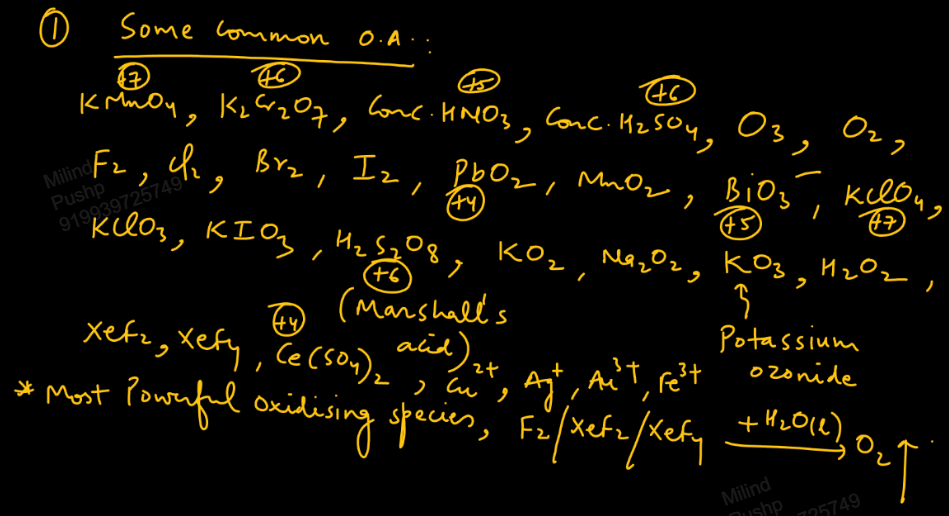 ① Some common O.A.:
+7 +6 +5 +6
KMnO4, K2Cr2O7, Conc. HNO3, Conc. H2SO4, O3, O2,
F2, Cl2, Br2, I2, PbO2, MnO2, BiO3⁻, KClO4,
+4 +5 +7
KClO3, KIO3, H2S2O8, KO2, Na2O2, KO3, H2O2,
+6
(Marshall's acid)
Potassium
ozonide
+4
XeF2, XeF4, Ce(SO4)2, Cu²⁺, Ag⁺, Au³⁺, Fe³⁺
* Most Powerful oxidising species, F2/XeF2/XeF4 + H2O(l) → O2 ↑
Milind
Pushp
919939725749
Milind